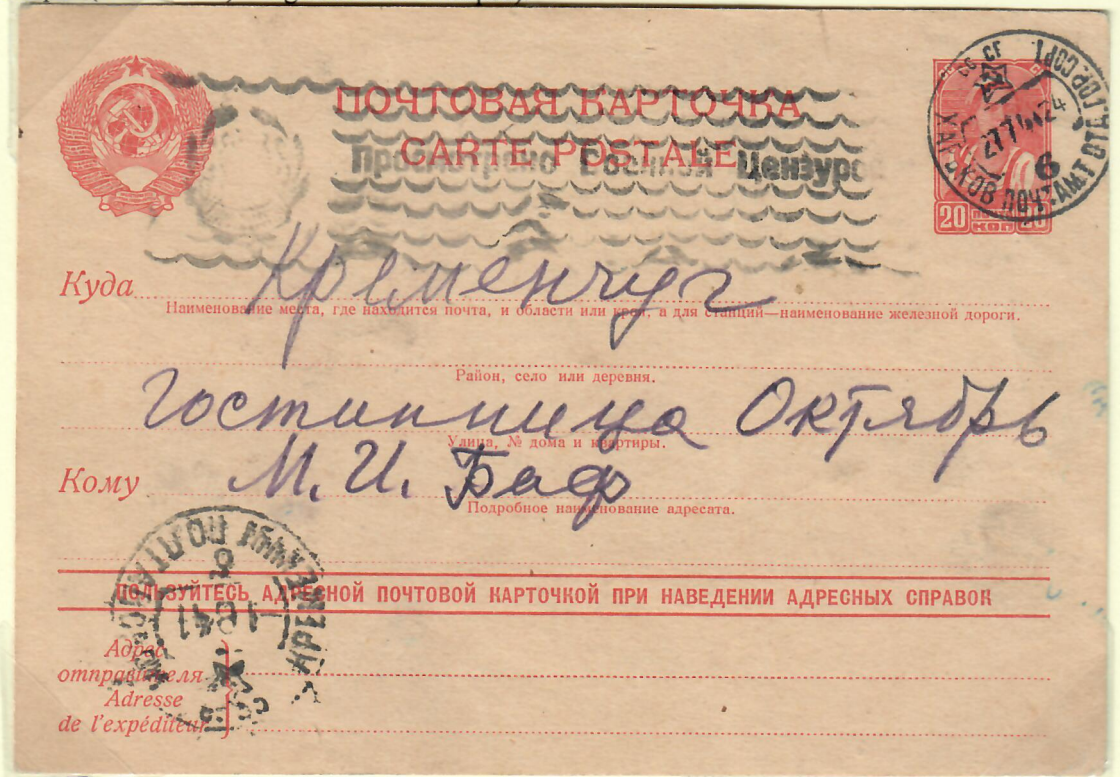 ПОЧТОВАЯ КАРТОЧКА
CARTE POSTALE
Просмотрено Военной Цензурой
ХАРЬКОВ ПОЧТАМТ ОТД. ГОР. СОРТ.
27 7 41 24
6
20 КОП 20
Куда Кременчуг
Наименование места, где находится почта, и области или края, а для станций—наименование железной дороги.
Район, село или деревня.
Гостинница Октябрь
Улица, № дома и квартиры.
Кому М. И. Баф
Подробное наименование адресата.
ПОЛЬЗУЙТЕСЬ АДРЕСНОЙ ПОЧТОВОЙ КАРТОЧКОЙ ПРИ НАВЕДЕНИИ АДРЕСНЫХ СПРАВОК
КРЕМЕНЧУГ ПОЛТАВСКОЙ
1 8 41
Адрес
отправителя
Adresse
de l'expéditeur